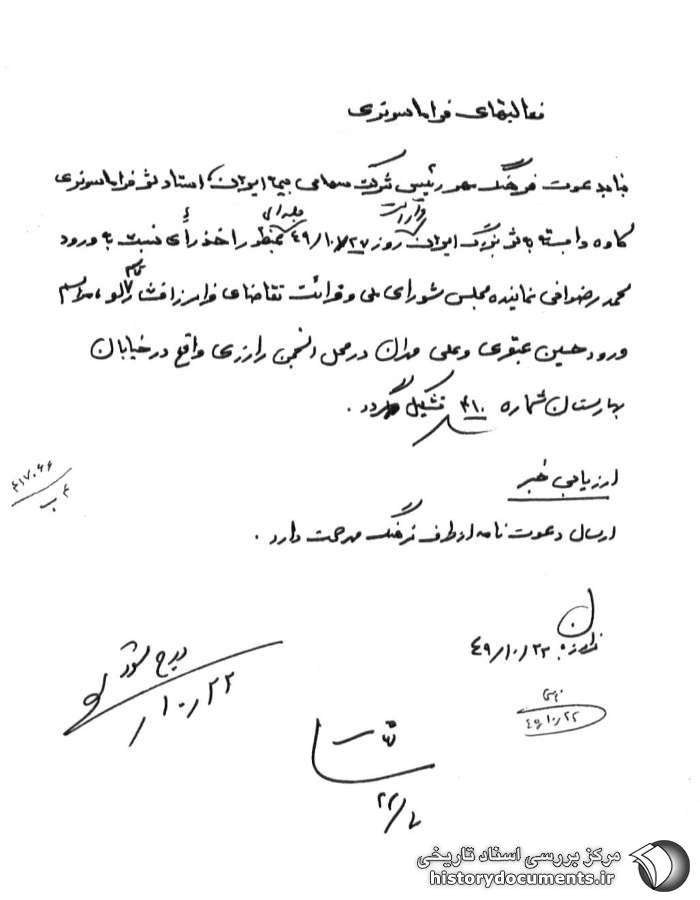 فعالیتهای فراماسونری
بنا بدعوت فرهنگ مهر رئیس شرکت سهامی بیمه ایران، استاد لژ فراماسونری
کاوه وابسته به لژ بزرگ ایران روز ۴۹/۱۰/۲۷ جلسه‌ای بمنظور اخذ رأی نسبت به ورود
محمد رضوانی نماینده مجلس شورای ملی و قرائت تقاضای فرامرز افشار، مراسم
ورود حسین عبقری و علی در محل انجمن رازی واقع در خیابان
بهارستان شماره ۴۱۰ تشکیل گردد.
ارزیابی خبر
ارسال دعوت نامه از طرف فرهنگ مهر صحت دارد.
۴۱۷۰۶۶
۴۹/۱۰/۲۲
درج شود
۱۰/۲۲
۴۹/۱۰/۲۲
مرکز بررسی اسناد تاریخی
historydocuments.ir